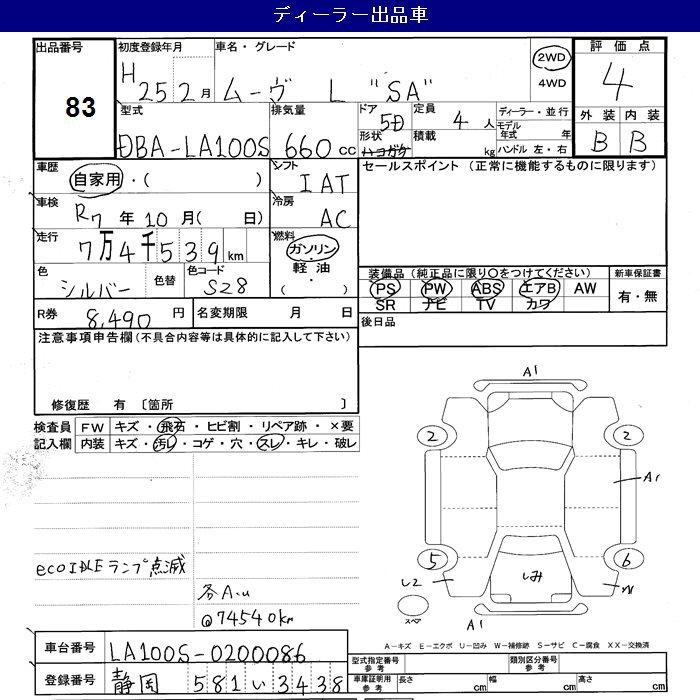 ディーラー出品車
出品番号 初度登録年月 車名・グレード 評価点
83
H 25 2月 ムーヴ L "SA" 2WD 4WD 4
型式 排気量 ドア 5D 定員 4人 ディーラー・並行 外装 内装
DBA-LA100S 660cc 形状 ハコガタ 積載 kg モデル年式 年 ハンドル 左・右 B B
車歴 シフト セールスポイント (正常に機能するものに限ります)
自家用・( ) I AT
車検 冷房
R7年10月( 日) AC
走行 燃料
7万4千539km ガソリン・軽油・( )
色 色替 色コード 装備品 (純正品に限り〇をつけてください) 新車保証書
シルバー S28 PS PW ABS エアB AW 有・無
SR ナビ TV カワ
R券 8,490円 名変期限 月 日 後日品
注意事項申告欄 (不具合内容等は具体的に記入して下さい)
修復歴 有 〔箇所 〕
検査員 FW キズ・飛石・ヒビ割・リペア跡・×要
記入欄 内装 キズ・汚レ・コゲ・穴・スレ・キレ・破レ
A1
2 2
A1
5 6
U2 しみ
スペ A1
ecoIDLEランプ点滅
各A.u
@74540km
A-キズ E-エクボ U-凹み W-補修跡 S-サビ C-腐食 XX-交換済
車台番号 LA100S-0200086 型式指定番号 参考 類別区分番号 参考
登録番号 静岡 581 い 3438 車庫証明用 参考 長さ cm 幅 cm 高さ cm